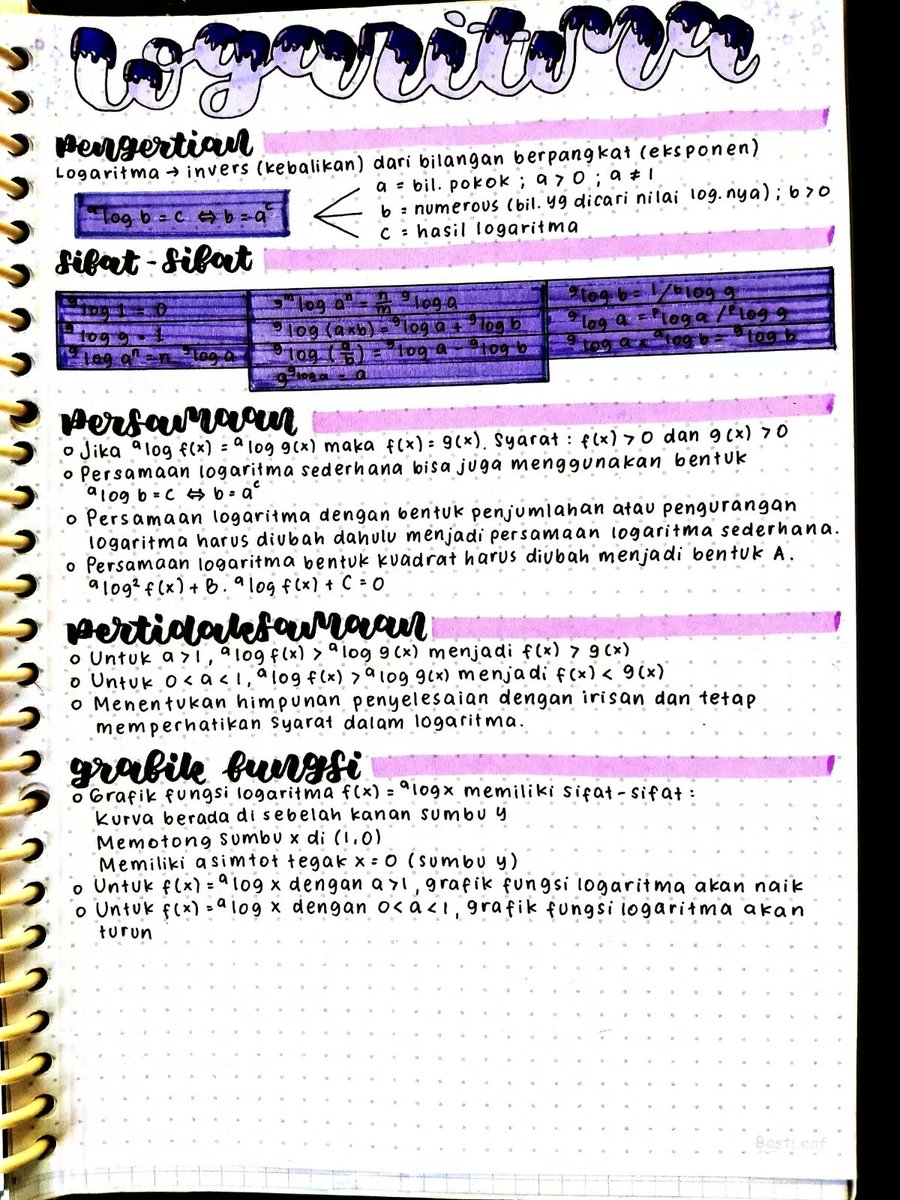 logaritma
pengertian
Logaritma → invers (kebalikan) dari bilangan berpangkat (eksponen)
ᵃlog b = c ⇔ b = aᶜ
a = bil. pokok ; a > 0 ; a ≠ 1
b = numerous (bil. yg dicari nilai log.nya) ; b > 0
c = hasil logaritma
sifat-sifat
ᵍlog 1 = 0
ᵍlog g = 1
ᵍlog aⁿ = n ᵍlog a
gᵐ log aⁿ = n/m ᵍlog a
ᵍlog (a×b) = ᵍlog a + ᵍlog b
ᵍlog (a/b) = ᵍlog a - ᵍlog b
g^(ᵍlog a) = a
ᵍlog b = 1/ᵇlog g
ᵍlog a = ᴾlog a / ᴾlog g
ᵍlog a × ᵃlog b = ᵍlog b
persamaan
o Jika ᵃlog f(x) = ᵃlog g(x) maka f(x) = g(x). Syarat : f(x) > 0 dan g(x) > 0
o Persamaan logaritma sederhana bisa juga menggunakan bentuk
ᵃlog b = c ⇔ b = aᶜ
o Persamaan logaritma dengan bentuk penjumlahan atau pengurangan
logaritma harus diubah dahulu menjadi persamaan logaritma sederhana.
o Persamaan logaritma bentuk kuadrat harus diubah menjadi bentuk A.
ᵃlog² f(x) + B. ᵃlog f(x) + C = 0
pertidaksamaan
o Untuk a > 1, ᵃlog f(x) > ᵃlog g(x) menjadi f(x) > g(x)
o Untuk 0 < a < 1, ᵃlog f(x) > ᵃlog g(x) menjadi f(x) < g(x)
o Menentukan himpunan penyelesaian dengan irisan dan tetap
memperhatikan syarat dalam logaritma.
grafik fungsi
o Grafik fungsi logaritma f(x) = ᵃlog x memiliki sifat-sifat :
Kurva berada di sebelah kanan sumbu y
Memotong sumbu x di (1,0)
Memiliki asimtot tegak x = 0 (sumbu y)
o Untuk f(x) = ᵃlog x dengan a > 1, grafik fungsi logaritma akan naik
o Untuk f(x) = ᵃlog x dengan 0 < a < 1, grafik fungsi logaritma akan
turun
BestLeaf